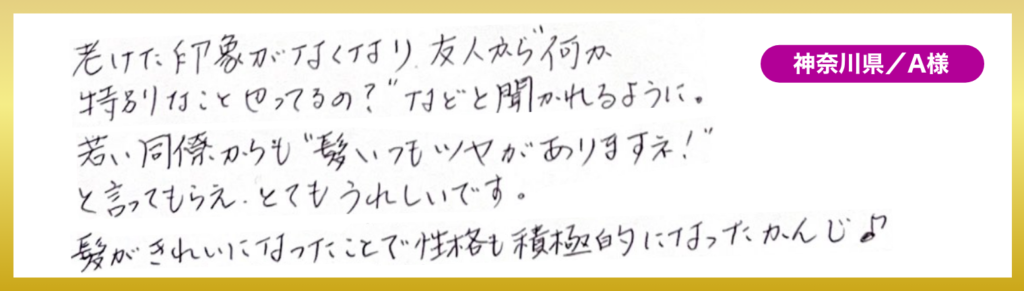 老けた印象がなくなり、友人から"何か
神奈川県／A様
特別なことやってるの？"などと聞かれるように。
若い同僚からも"髪いつもツヤがありますネ！"
と言ってもらえ、とてもうれしいです。
髪がきれいになったことで性格も積極的になったかんじ♪